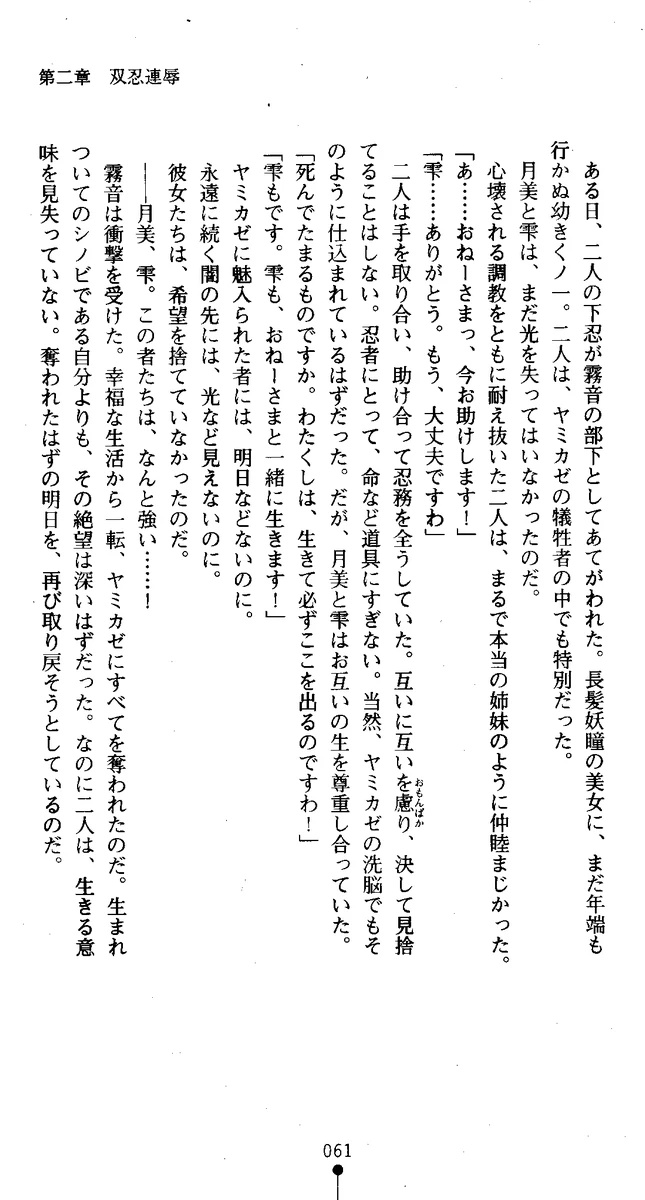 第二章　双忍連辱
ある日、二人の下忍が霧音の部下としてあてがわれた。長髪妖瞳の美女に、まだ年端も
行かぬ幼きくノ一。二人は、ヤミカゼの犠牲者の中でも特別だった。
月美と雫は、まだ光を失ってはいなかったのだ。
心壊される調教をともに耐え抜いた二人は、まるで本当の姉妹のように仲睦まじかった。
「あ……おねーさまっ、今お助けします！」
「雫……ありがとう。もう、大丈夫ですわ」
二人は手を取り合い、助け合って忍務を全うしていた。互いに互いを慮り、決して見捨
おもんばか
てることはしない。忍者にとって、命など道具にすぎない。当然、ヤミカゼの洗脳でもそ
のように仕込まれているはずだった。だが、月美と雫はお互いの生を尊重し合っていた。
「死んでたまるものですか。わたくしは、生きて必ずここを出るのですわ！」
「雫もです。雫も、おねーさまと一緒に生きます！」
ヤミカゼに魅入られた者には、明日などないのに。
永遠に続く闇の先には、光など見えないのに。
彼女たちは、希望を捨てていなかったのだ。
――月美、雫。この者たちは、なんと強い……！
霧音は衝撃を受けた。幸福な生活から一転、ヤミカゼにすべてを奪われたのだ。生まれ
ついてのシノビである自分よりも、その絶望は深いはずだった。なのに二人は、生きる意
味を見失っていない。奪われたはずの明日を、再び取り戻そうとしているのだ。
061